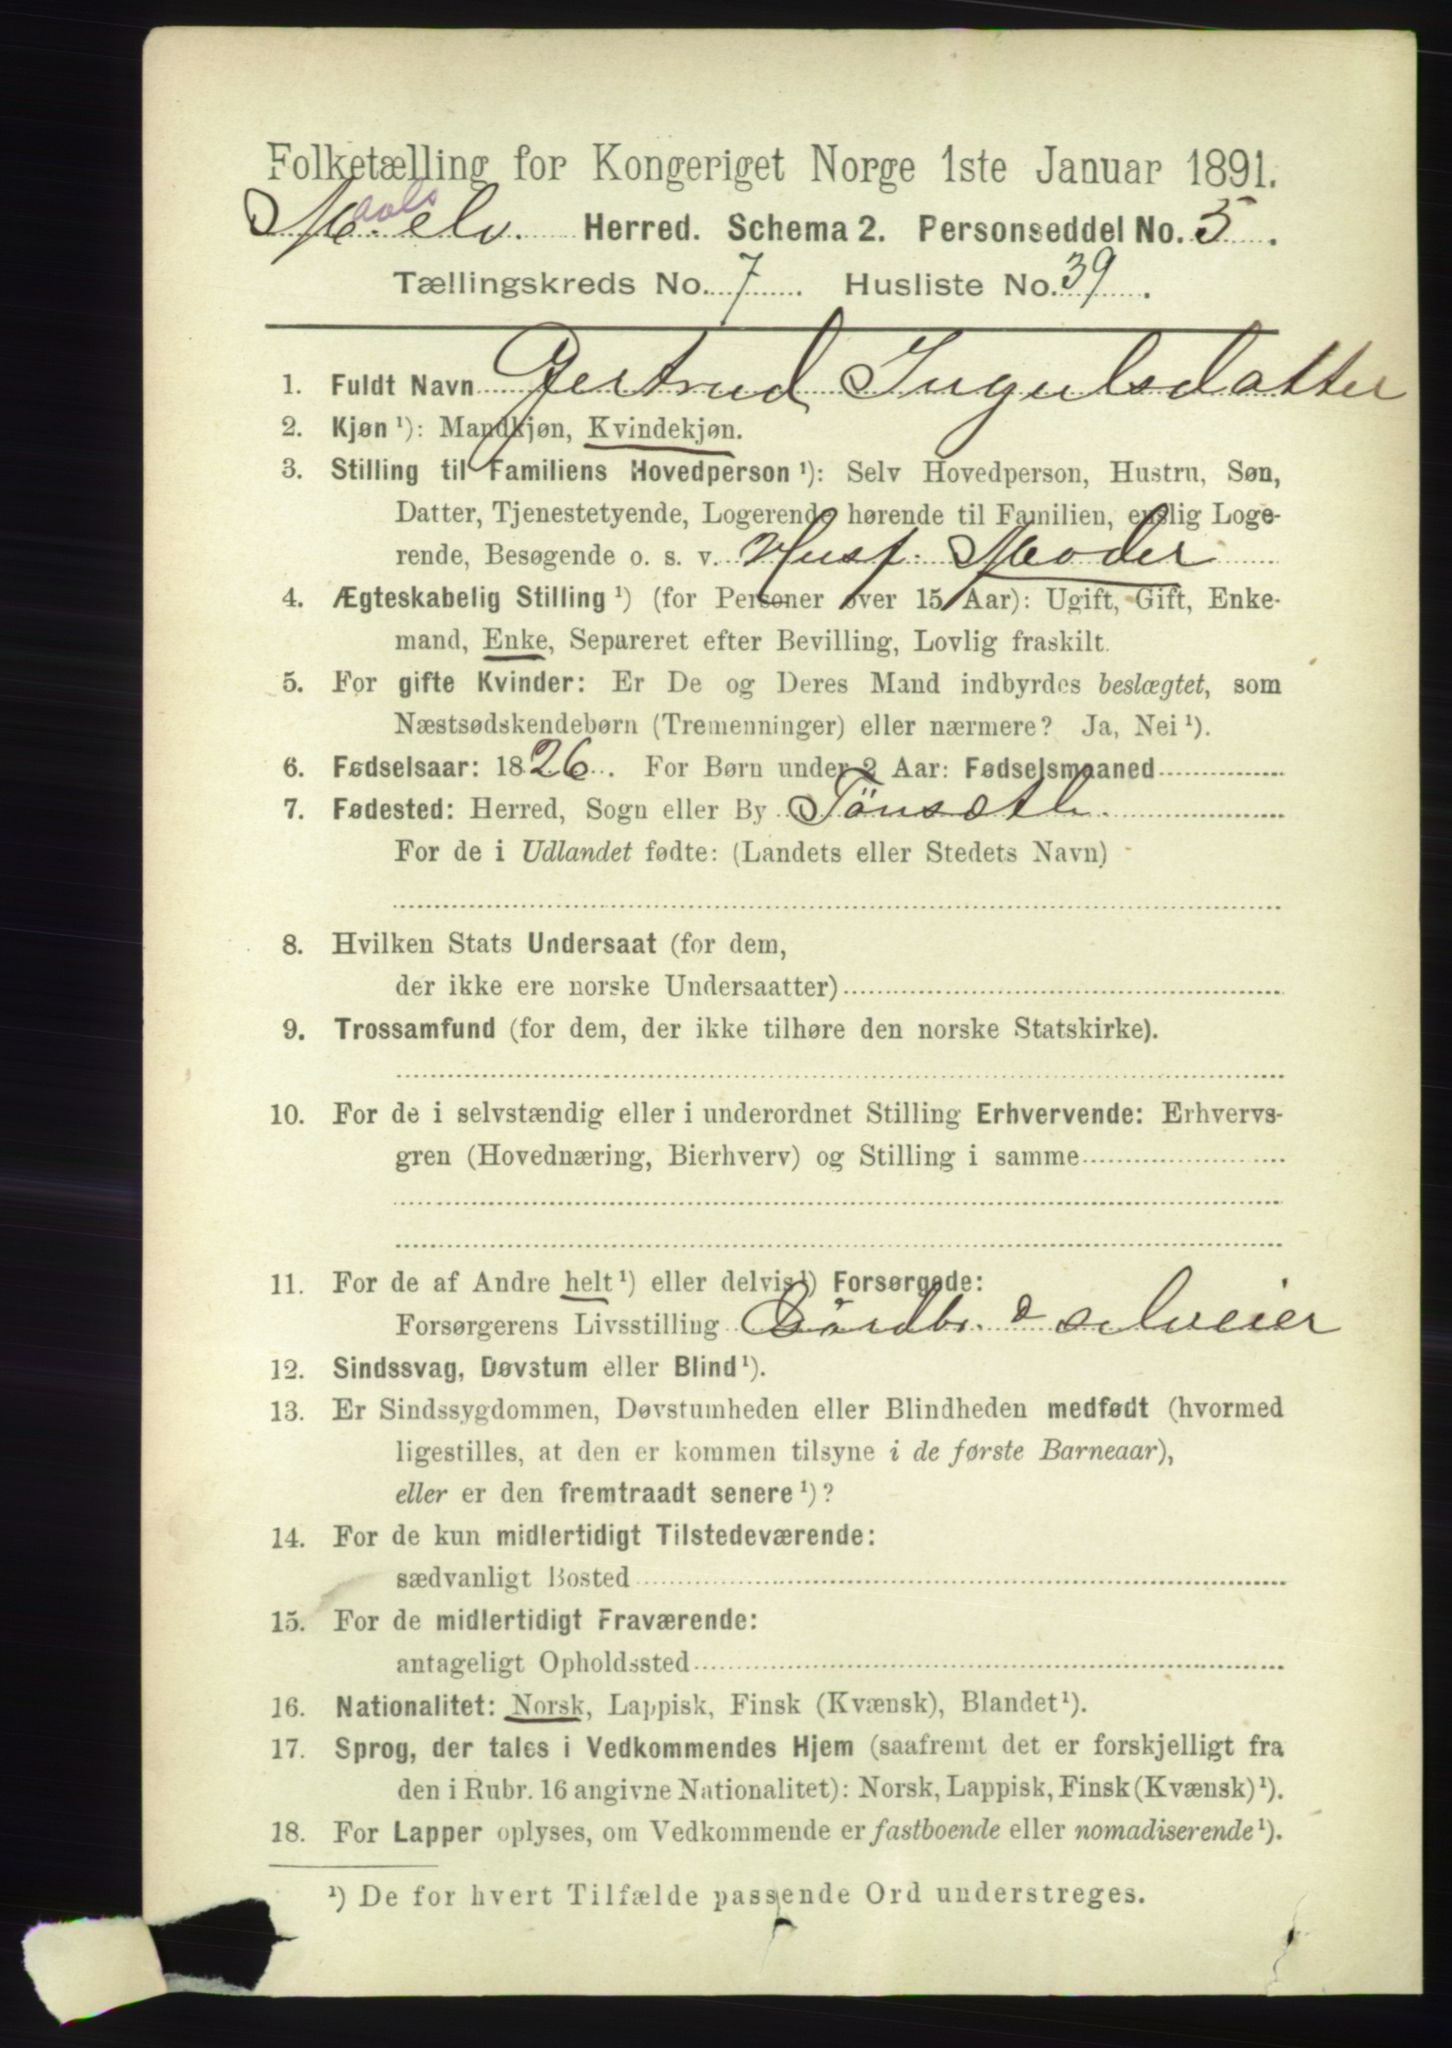 Folketælling for Kongeriget Norge 1ste Januar 1891.
M.aals elv. Herred. Schema 2. Personseddel No. 5.
Tællingskreds No. 7. Husliste No. 39.
1. Fuldt Navn Gjertrud Ingulsdatter
2. Kjøn ¹): Mandkjøn, Kvindekjøn.
3. Stilling til Familiens Hovedperson ¹): Selv Hovedperson, Hustru, Søn,
Datter, Tjenestetyende, Logerende hørende til Familien, enslig Loge-
rende, Besøgende o. s. v. Husf. Moder
4. Ægteskabelig Stilling ¹) (for Personer over 15 Aar): Ugift, Gift, Enke-
mand, Enke, Separeret efter Bevilling, Lovlig fraskilt.
5. For gifte Kvinder: Er De og Deres Mand indbyrdes beslægtet, som
Næstsødskendebørn (Tremenninger) eller nærmere? Ja, Nei ¹).
6. Fødselsaar: 1826. For Børn under 2 Aar: Fødselsmaaned
7. Fødested: Herred, Sogn eller By Tönsæth.
For de i Udlandet fødte: (Landets eller Stedets Navn)
8. Hvilken Stats Undersaat (for dem,
der ikke ere norske Undersaatter)
9. Trossamfund (for dem, der ikke tilhøre den norske Statskirke).
10. For de i selvstændig eller i underordnet Stilling Erhvervende: Erhvervs-
gren (Hovednæring, Bierhverv) og Stilling i samme
11. For de af Andre helt ¹) eller delvis ¹) Forsørgede:
Forsørgerens Livsstilling Gårdbr. & selveier
12. Sindssvag, Døvstum eller Blind ¹).
13. Er Sindssygdommen, Døvstumheden eller Blindheden medfødt (hvormed
ligestilles, at den er kommen tilsyne i de første Barneaar),
eller er den fremtraadt senere ¹)?
14. For de kun midlertidigt Tilstedeværende:
sædvanligt Bosted
15. For de midlertidigt Fraværende:
antageligt Opholdssted
16. Nationalitet: Norsk, Lappisk, Finsk (Kvænsk), Blandet ¹).
17. Sprog, der tales i Vedkommendes Hjem (saafremt det er forskjelligt fra
den i Rubr. 16 angivne Nationalitet): Norsk, Lappisk, Finsk (Kvænsk) ¹).
18. For Lapper oplyses, om Vedkommende er fastboende eller nomadiserende ¹).
¹) De for hvert Tilfælde passende Ord understreges.